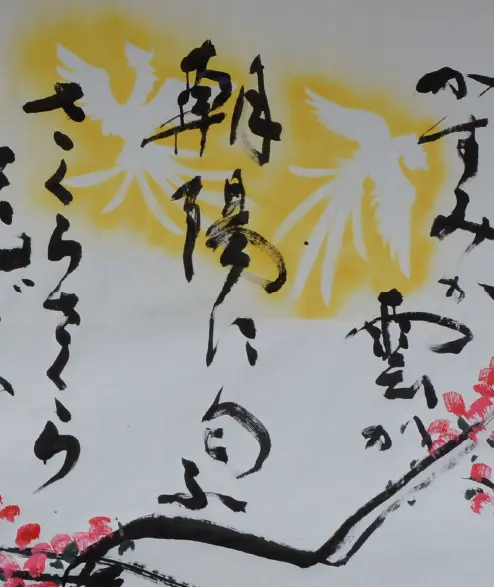 かすみか
雲か
朝陽に匂ふ
さくらさくら